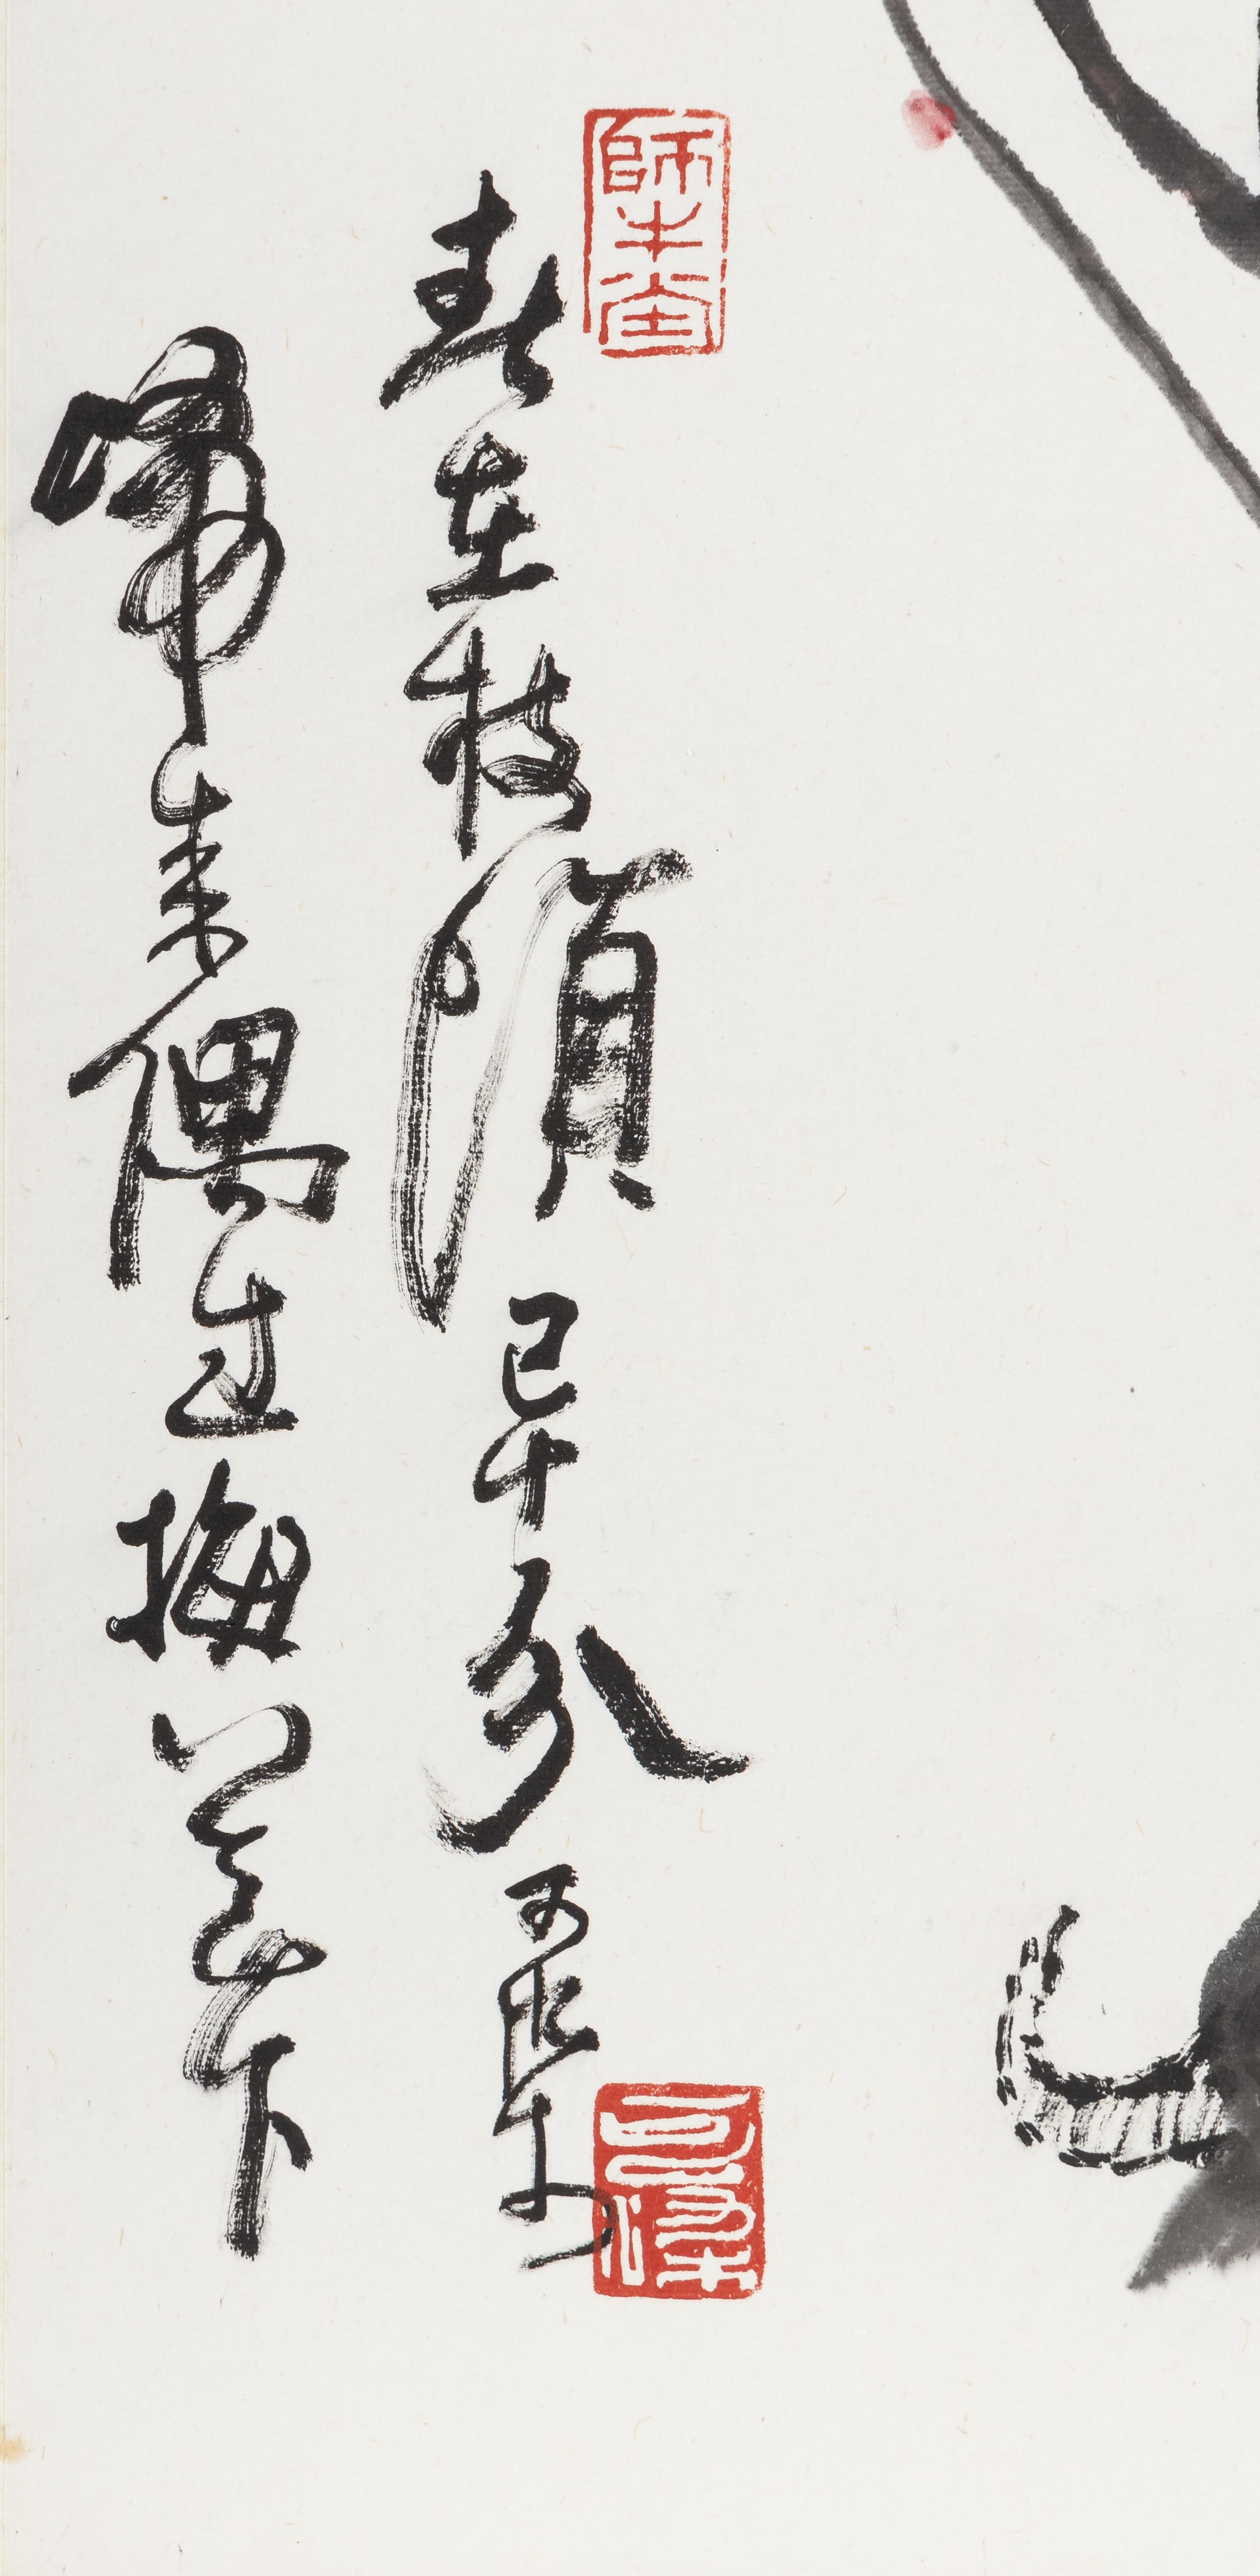 歸来偶過梅花下
春在枝頭已十分 可染
師牛堂
可染